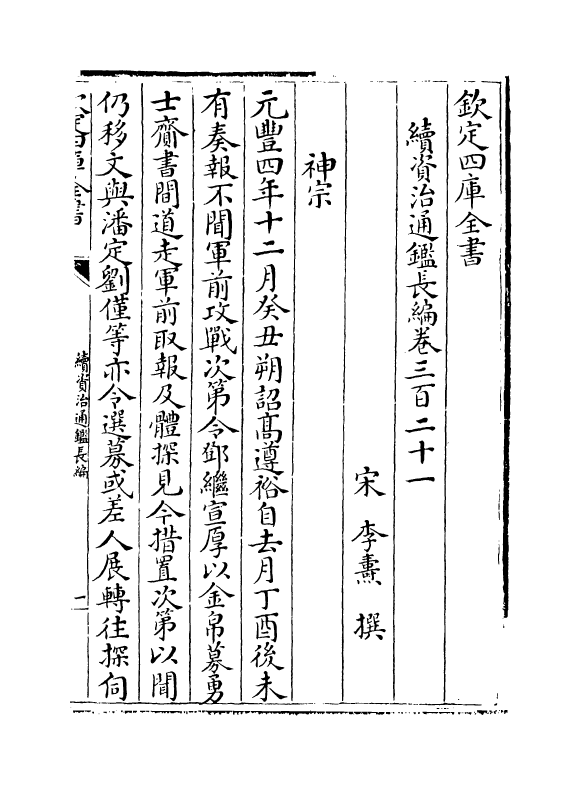 欽定四庫全書
續資治通鑑長編卷三百二十一
宋 李燾 撰
神宗
元豐四年十二月癸丑朔詔高遵裕自去月丁酉後未
有奏報不聞軍前攻戰次第令鄧繼宣厚以金帛募勇
士齎書間道走軍前取報及體探見今措置次第以聞
仍移文與潘定劉僅等亦令選募或差人展轉往探伺
欽定四庫全書
續資治通鑑長編
一